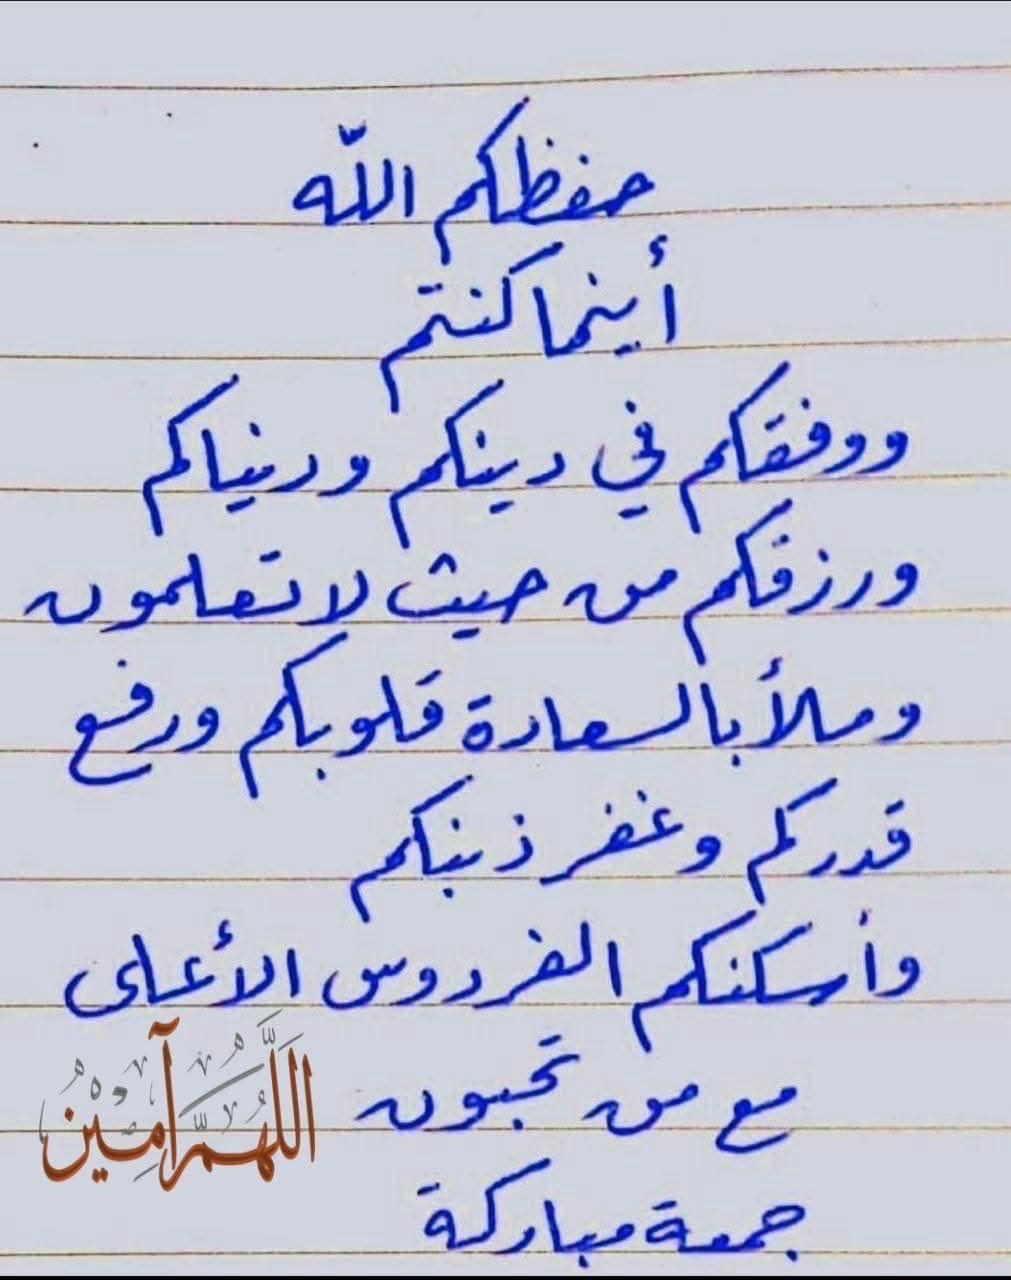 حفظكم الله
أينما كنتم
ووفقكم في دينكم ودنياكم
ورزقكم من حيث لا تعلمون
وملأ بالسعادة قلوبكم ورفع
قدركم وغفر ذنبكم
وأسكنكم الفردوس الأعلى
مع من تحبون
اللَّهُمَّ آمِيْن
جمعة مباركة